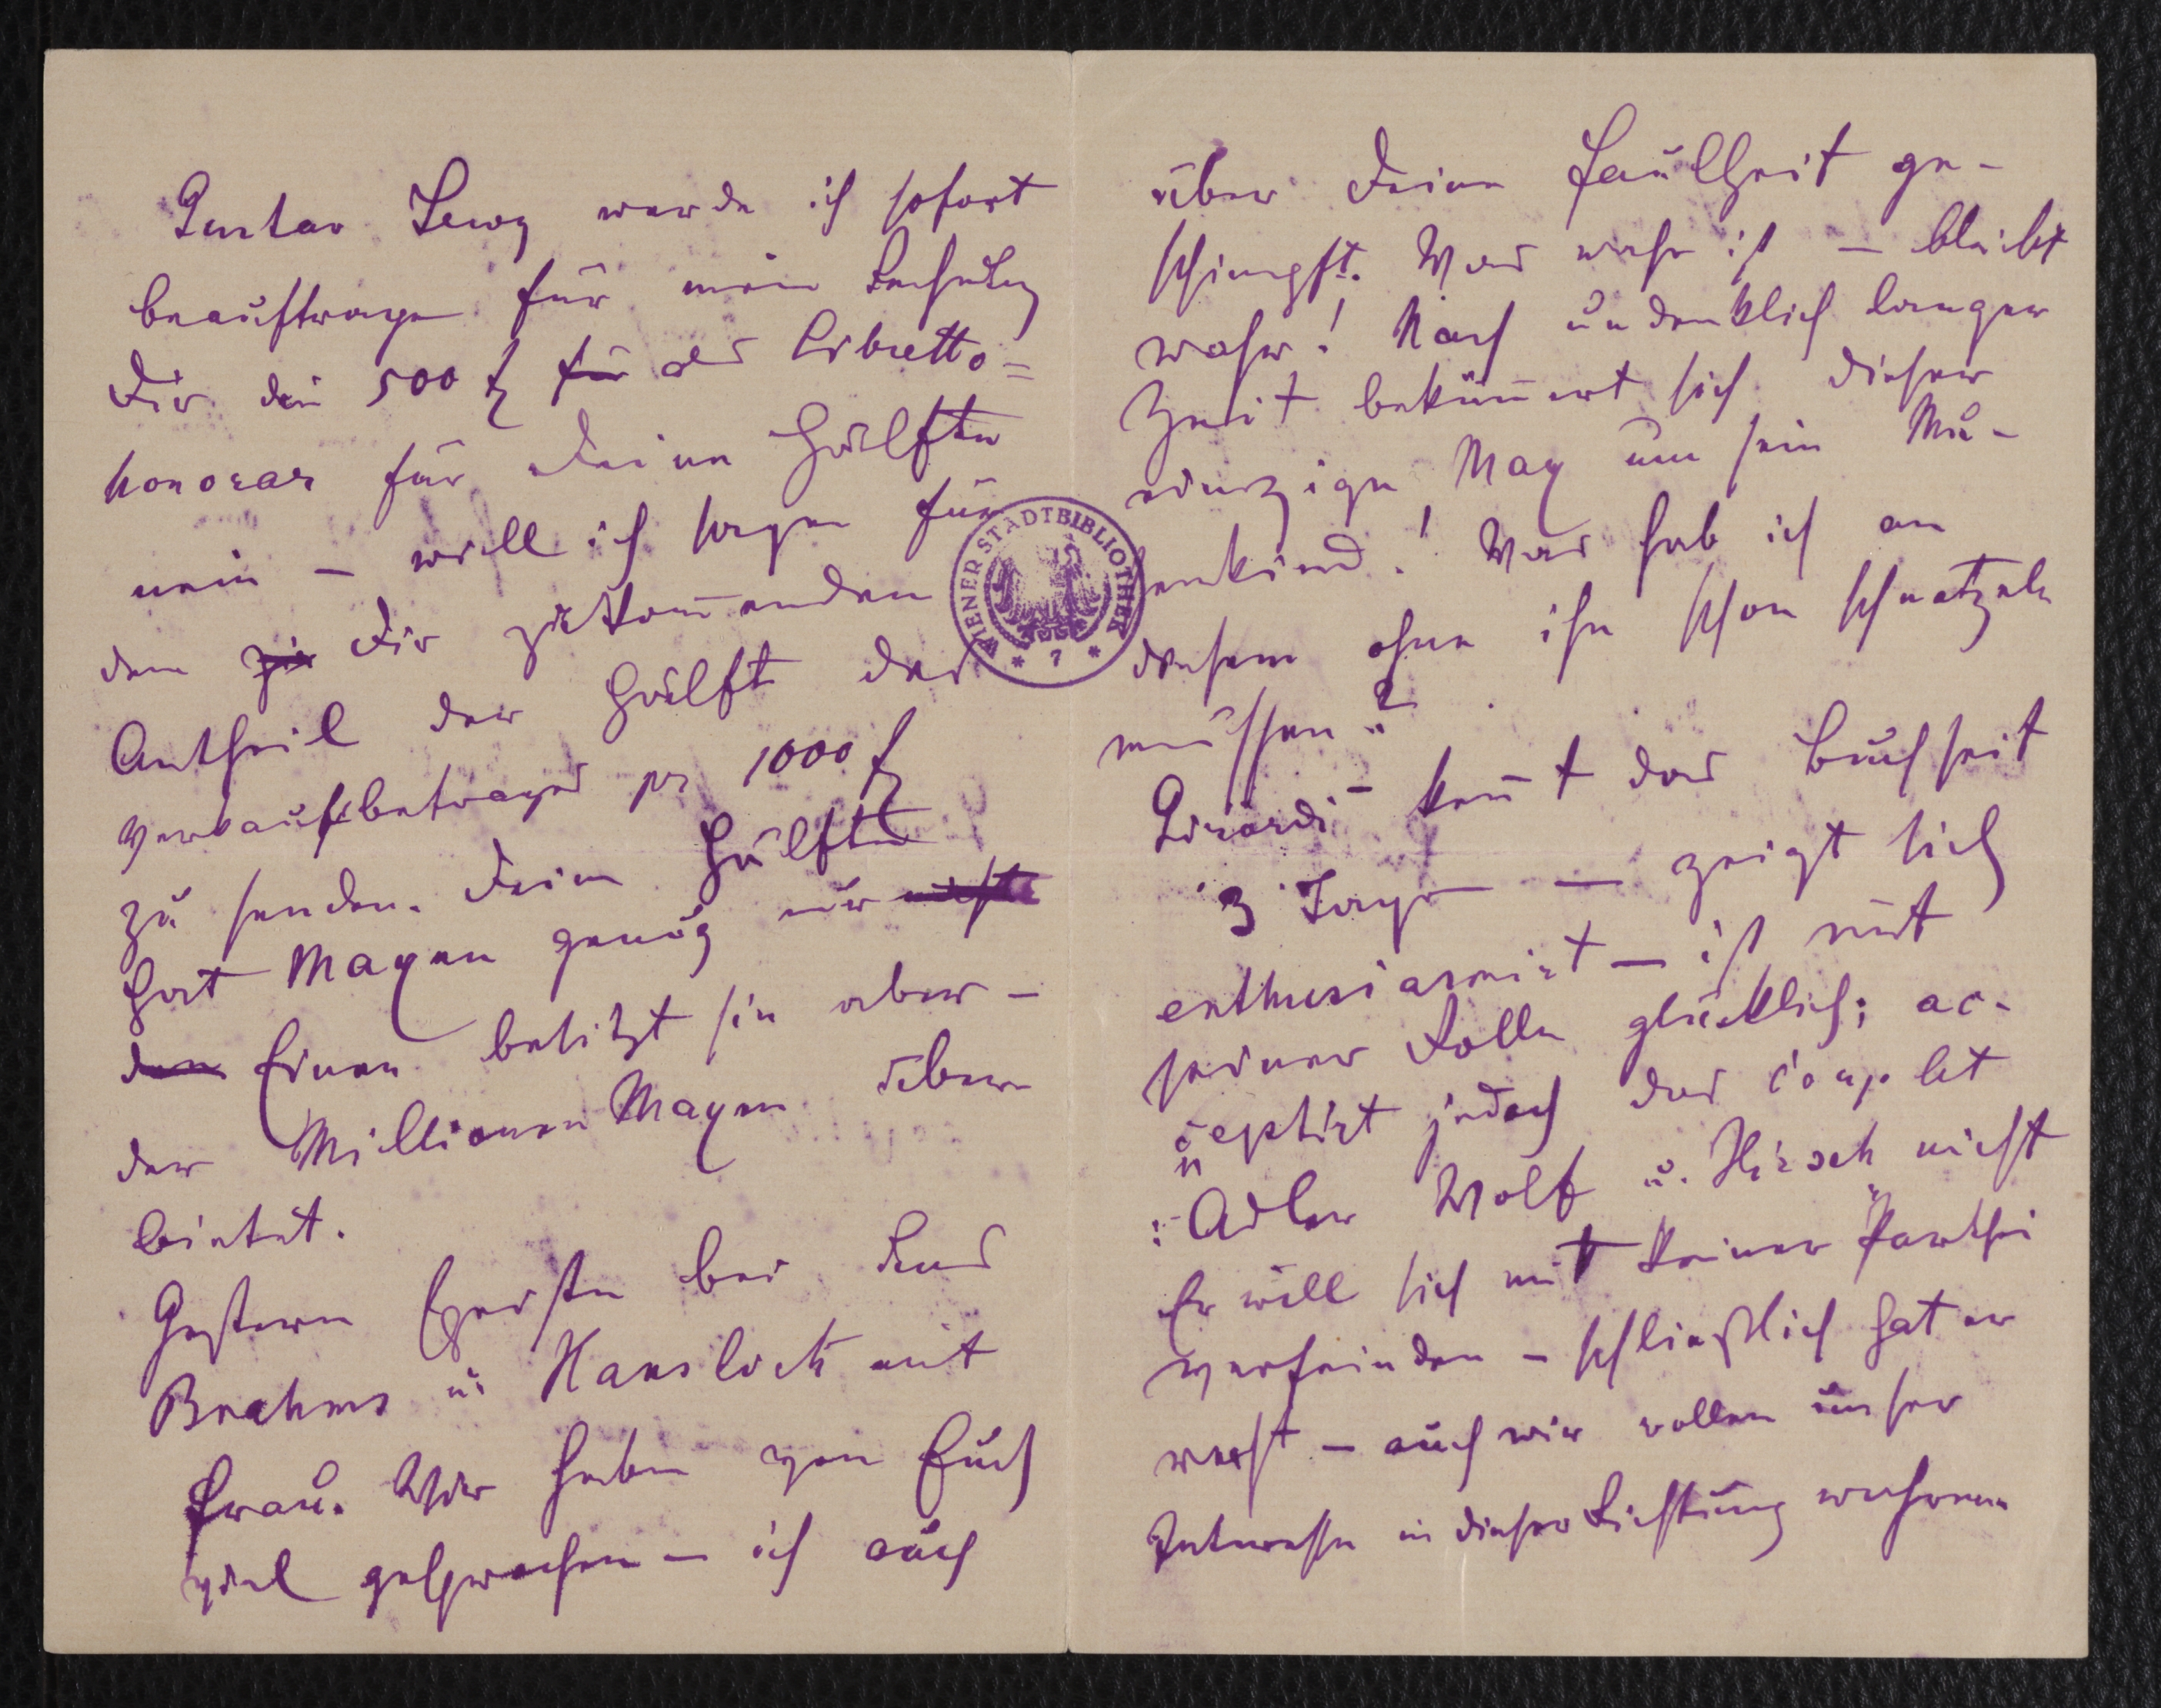 Gustav Lewy werde ich sofort
beauftragen für mein Rechnung
Dir die 500 f für als Libretto=
honorar für Deine Hälfte
nein – will ich sagen für
dem zu Dir zukom̄enden
Antheil der Hälft des
Verkaufsbetrages pr 1000 f
zu senden. Deine Hälfte
hat Magen genug nur nicht
den Einen besitzt sie aber –
der Millionen Magen
bietet.
Gestern speisten bei uns
Brahms u. Hanslick mit
Frau. Wir haben von Euch
viel gesprochen – ich auch
über Deine Faulheit ge-
schimpft. Was wahr ist – bleibt
wahr! Nach undenklich langer
Zeit beküm̄ert sich dieser
einzige Max um sein Mu-
senkind! Was hab ich an
diesem ohne ihn schon schnatzeln
müssen?
Girardi – ken̄t das Buch seit
3 Tage – zeigt sich
enthusiasmirt – ist mit
seiner Rolle glücklich; ac-
ceptirt jedoch das Couplet
„Adler Wolf u. Hirsch" nicht
Er will sich mit keiner Parthei
verfeinden – schließlich hat er
recht – auch wir wollen unser
Interesse in dieser Richtung wahren
WIENER STADTBIBLIOTHEK
* 7 *